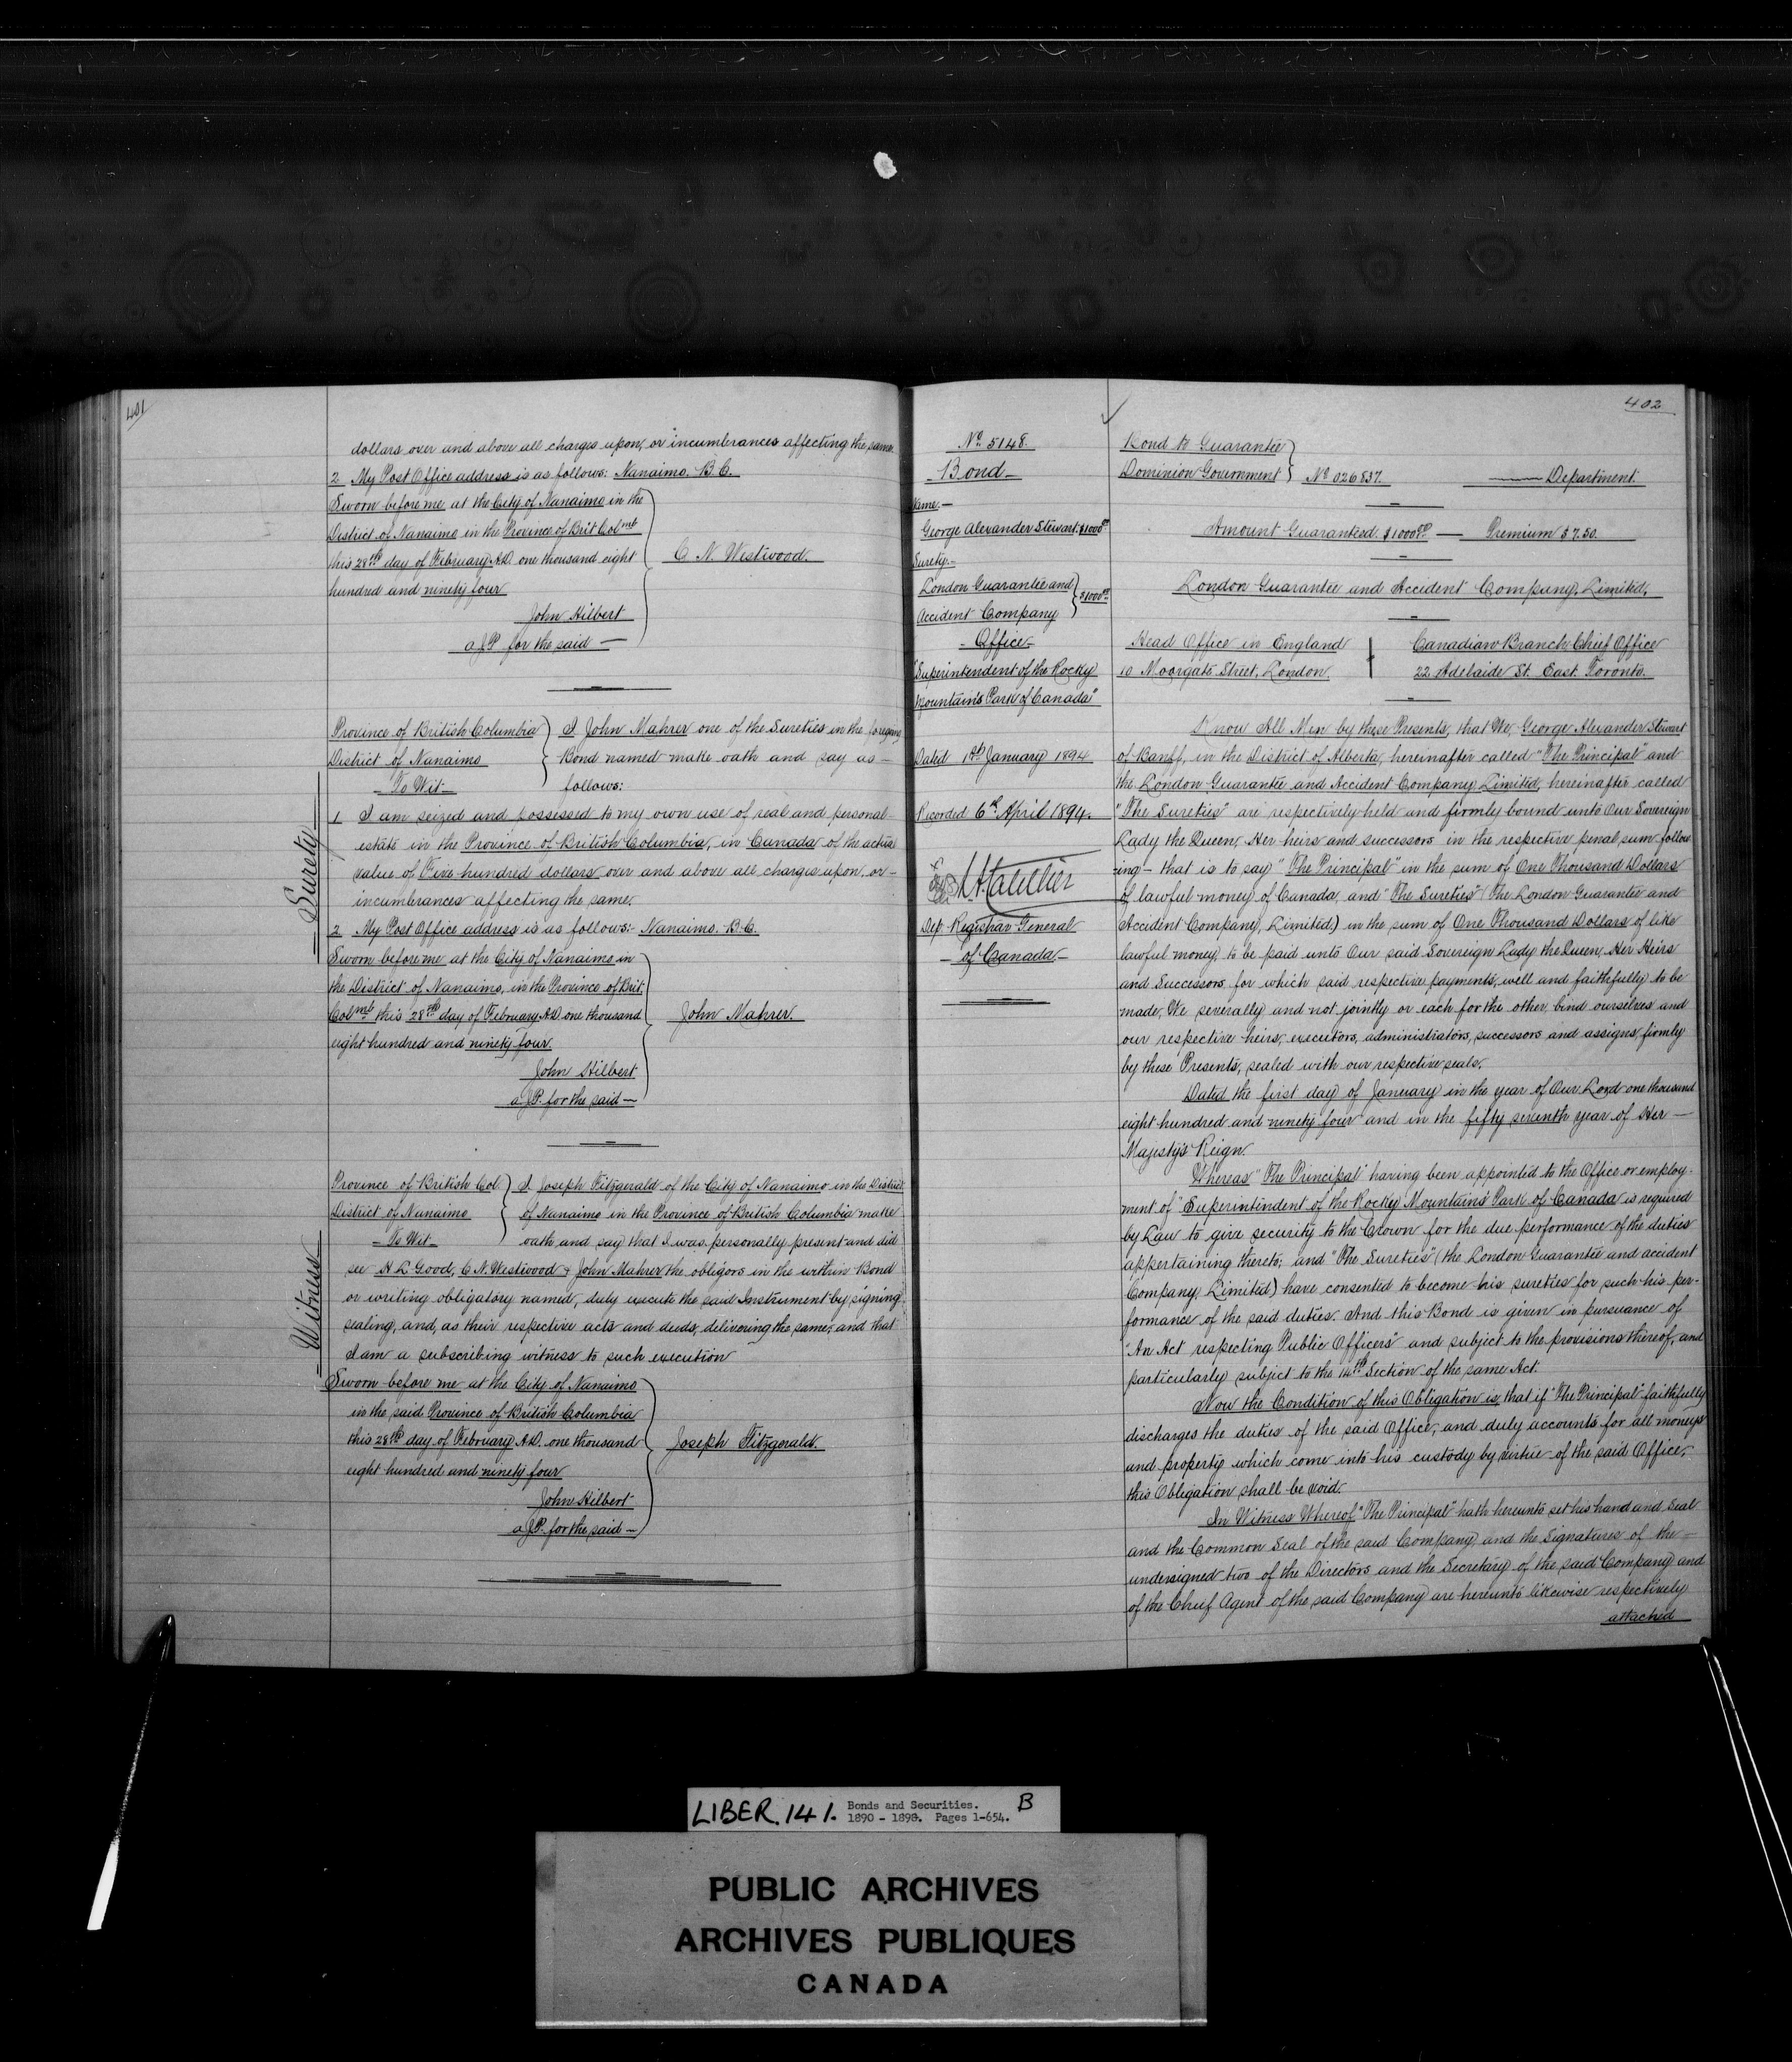 401
dollars over and above all charges upon, or incumbrances affecting the same.
2 My Post Office address is as follows: Nanaimo. B.C.
Sworn before me at the City of Nanaimo in the
District of Nanaimo in the Province of Brit Colmb
this 28th day of February A.D. one thousand eight
hundred and ninety four
C. N. Westwood.
John Hilbert
a J.P. for the said —
Province of British Columbia
District of Nanaimo
To Wit
I John Mahrer one of the Sureties in the foregoing
Bond named make oath and say as —
follows:
Surety
1 I am seized and possessed to my own use of real and personal
estate in the Province of British Columbia, in Canada of the actual
value of Five hundred dollars over and above all charges upon, or —
incumbrances affecting the same.
2 My Post Office address is as follows:- Nanaimo. B.C.
Sworn before me at the City of Nanaimo in
the District of Nanaimo, in the Province of Brit.
Colmb this 28th day of February A.D. one thousand
eight hundred and ninety four.
John Mahrer.
John Hilbert
a J.P. for the said —
Province of British Col
District of Nanaimo
To Wit
I Joseph Fitzgerald of the City of Nanaimo in the District
of Nanaimo in the Province of British Columbia make
oath and say that I was personally present and did
Witness
see H L Good, C. N. Westwood & John Mahrer the obligors in the within Bond
or writing obligatory named, duly execute the said Instrument by signing
sealing, and, as their respective acts and deeds, delivering the same, and that
I am a subscribing witness to such execution
Sworn before me at the City of Nanaimo
in the said Province of British Columbia
this 28th day of February A.D. one thousand
eight hundred and ninety four
Joseph Fitzgerald.
John Hilbert
a J.P. for the said —
402
No 5148.
Bond
Name.—
George Alexander Stewart. $1000.00
Surety.—
London Guarantee and
Accident Company
$1000.00
Office
"Superintendent of the Rocky
Mountains Park of Canada"
Dated 1st January 1894
Recorded 6th April 1894.
Dep. Registrar General
of Canada.
Bond to Guarantee
Dominion Government
No 026837.
Department.
Amount Guaranteed. $1000.00 — Premium $7.50.
London Guarantee and Accident Company, Limited,
Head Office in England
10 Moorgate Street, London.
Canadian Branch Chief Office
22 Adelaide St. East. Toronto.
Know All Men by these Presents, that We, George Alexander Stewart
of Banff, in the District of Alberta, hereinafter called "The Principal" and
the London Guarantee and Accident Company Limited, hereinafter called
"The Sureties" are respectively held and firmly bound unto Our Sovereign
Lady the Queen, Her heirs and successors in the respective penal sum follow
ing — that is to say "The Principal" in the sum of One Thousand Dollars
of lawful money of Canada, and "The Sureties" (The London Guarantee and
Accident Company, Limited.) in the sum of One Thousand Dollars of like
lawful money, to be paid unto Our said Sovereign Lady the Queen, Her Heirs
and Successors for which said respective payments, well and faithfully to be
made, We severally and not jointly or each for the other, bind ourselves and
our respective heirs, executors, administrators, successors and assigns, firmly
by these Presents, sealed with our respective seals.
Dated the first day of January in the year of Our Lord one thousand
eight hundred and ninety four and in the fifty seventh year of Her —
Majesty's Reign.
Whereas "The Principal" having been appointed to the Office or employ-
ment of "Superintendent of the Rocky Mountains Park of Canada is required
by Law to give security to the Crown for the due performance of the duties
appertaining thereto; and "The Sureties" (the London Guarantee and accident
Company Limited) have consented to become his sureties for such his per-
formance of the said duties. And this Bond is given in pursuance of
"An Act respecting Public Officers" and subject to the provisions thereof, and
particularly subject to the 14th Section of the same Act.
Now the Condition of this Obligation is, that if "The Principal" faithfully
discharges the duties of the said Office, and duly accounts for all moneys
and property which come into his custody by virtue of the said Office,
this Obligation shall be void.
In Witness Whereof "The Principal" hath hereunto set his hand and Seal
and the Common Seal of the said Company, and the Signatures of the —
undersigned two of the Directors and the Secretary of the said Company and
of the Chief Agent of the said Company are hereunto likewise respectively
attached
LIBER. 141. Bonds and Securities. B
1890 - 1898. Pages 1-654.
PUBLIC ARCHIVES
ARCHIVES PUBLIQUES
CANADA